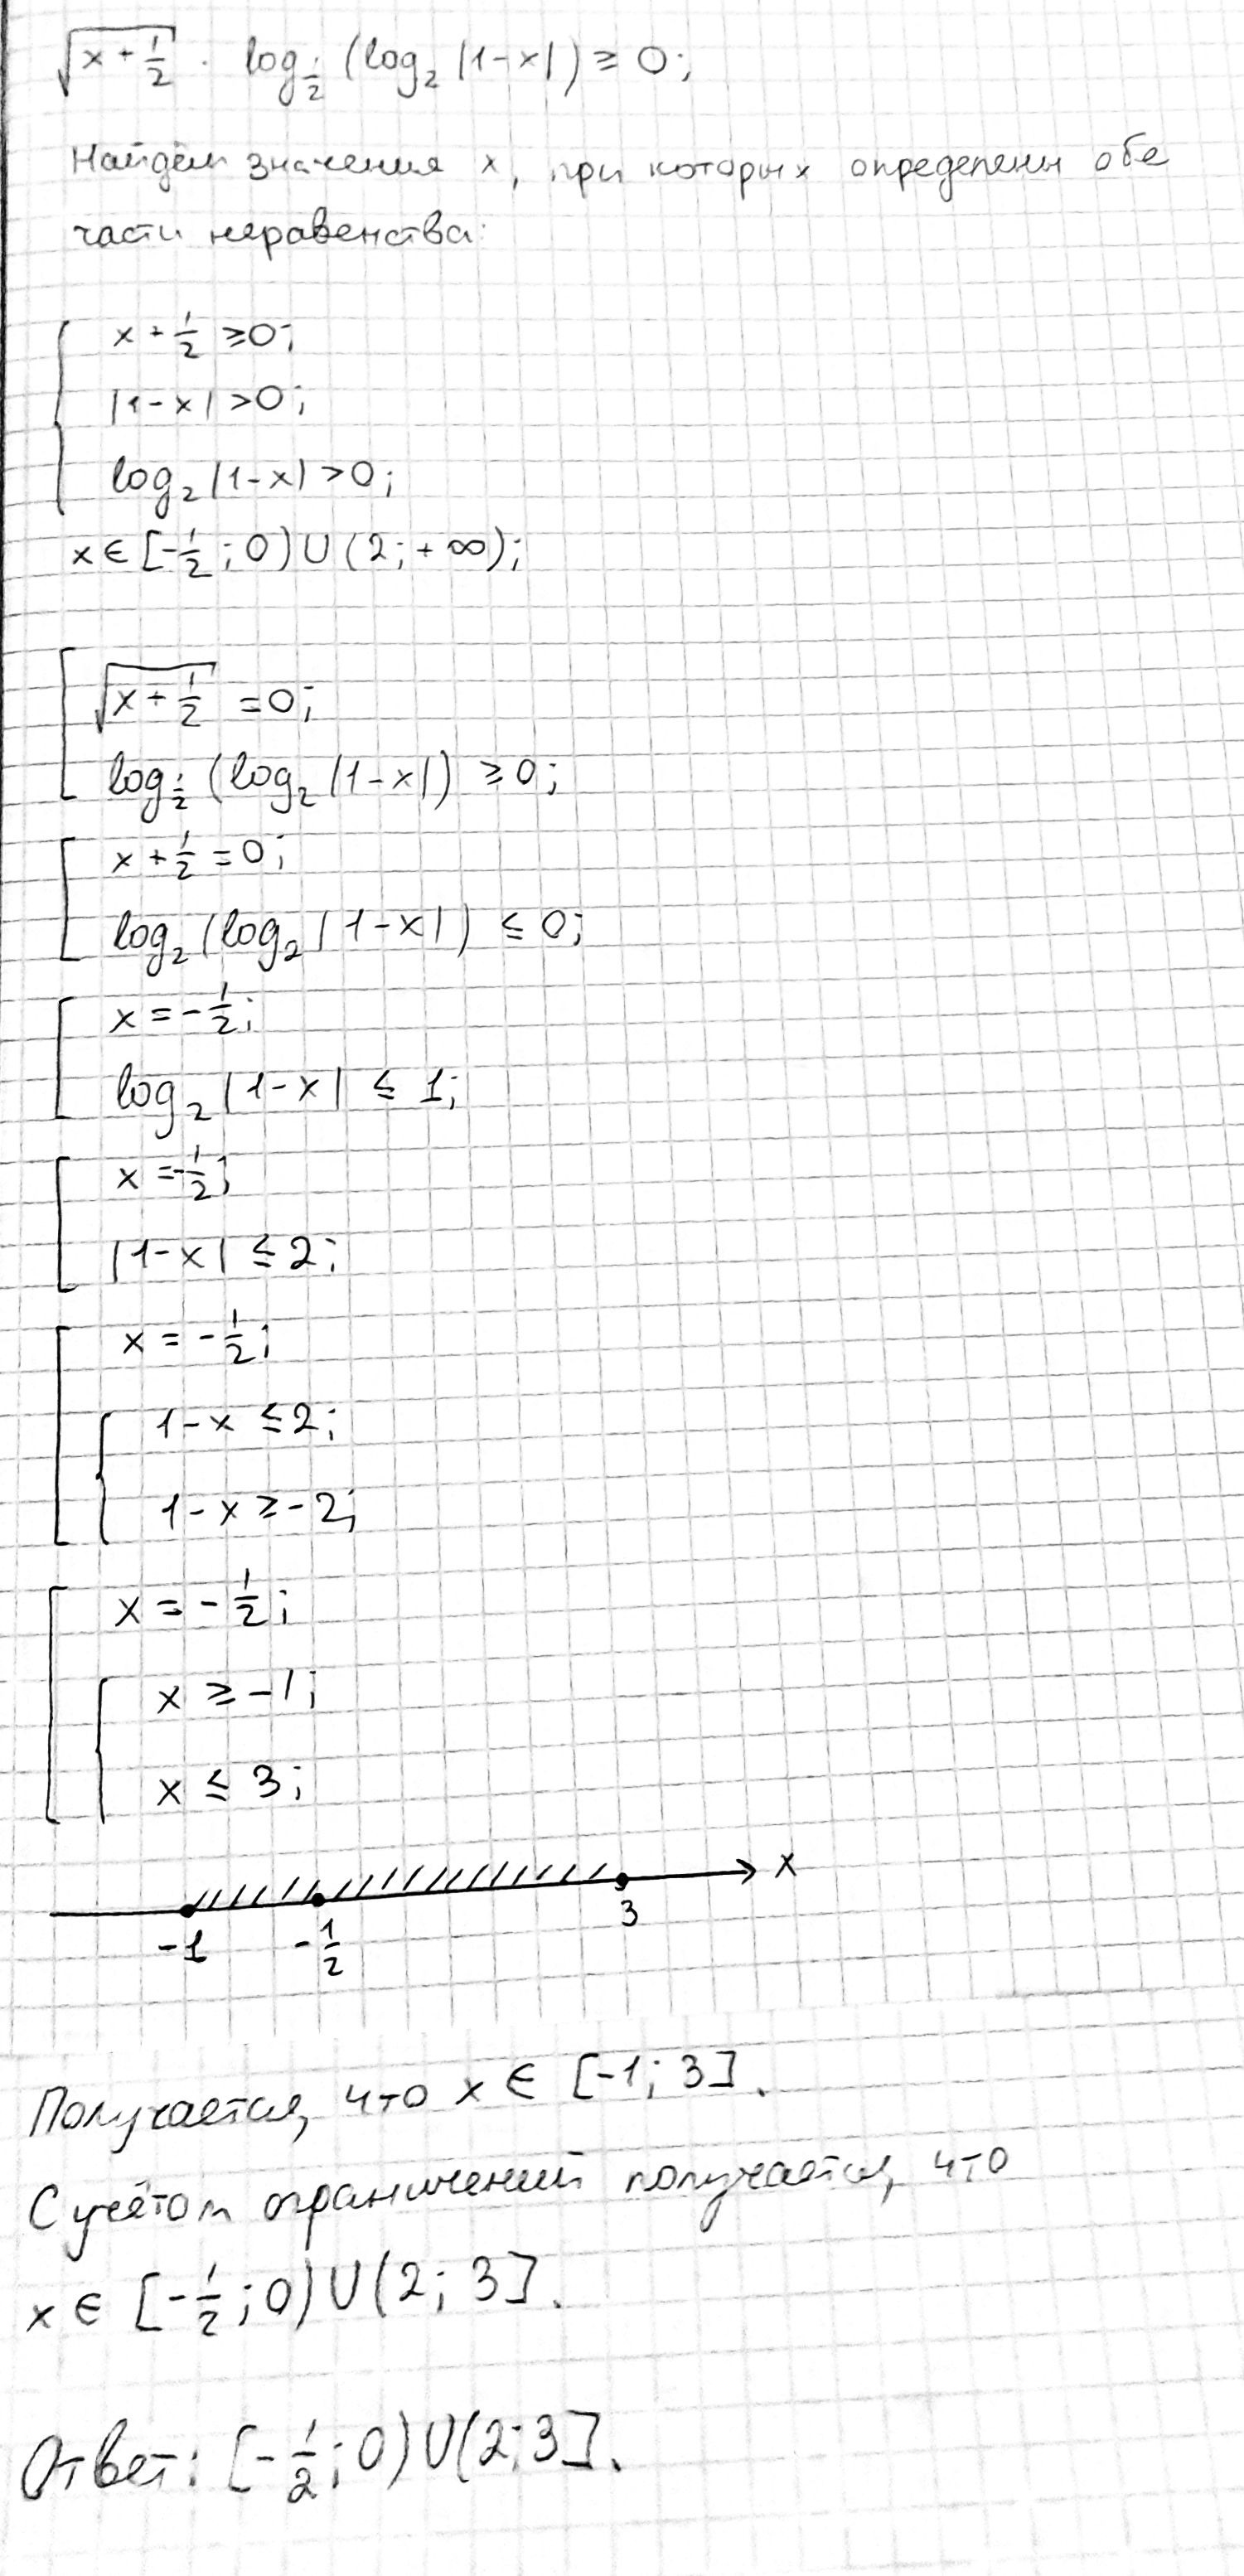 √(x + 1/2) · log_{1/2} (log_2 |1-x|) ≥ 0;
Найдём значения x, при которых определены обе
части неравенства:
x + 1/2 ≥ 0;
|1-x| > 0;
log_2 |1-x| > 0;
x ∈ [-1/2; 0) ∪ (2; +∞);
√(x + 1/2) = 0;
log_{1/2} (log_2 |1-x|) ≥ 0;
x + 1/2 = 0;
log_2 (log_2 |1-x|) ≤ 0;
x = -1/2;
log_2 |1-x| ≤ 1;
x = -1/2;
|1-x| ≤ 2;
x = -1/2;
1-x ≤ 2;
1-x ≥ -2;
x = -1/2;
x ≥ -1;
x ≤ 3;
x
-1 -1/2 3
Получается, что x ∈ [-1; 3].
С учётом ограничений получается, что
x ∈ [-1/2; 0) ∪ (2; 3].
Ответ: [-1/2; 0) ∪ (2; 3].